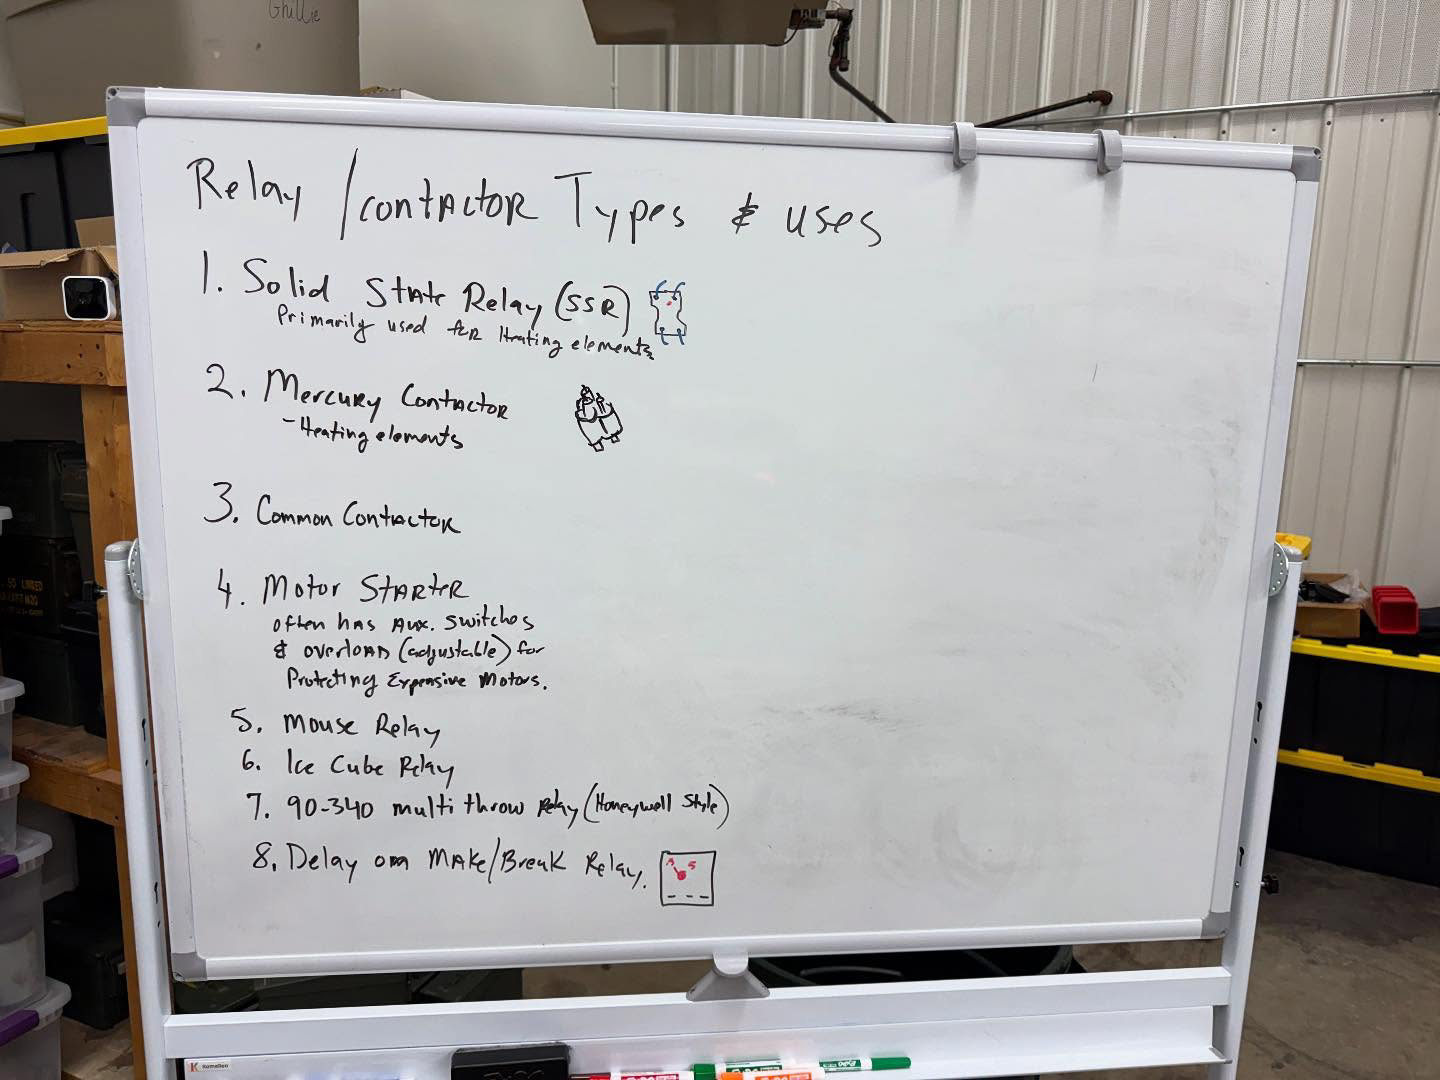 Ghillie
Relay / contactor Types & uses
1. Solid State Relay (SSR)
Primarily used for Heating elements
2. Mercury Contactor
- Heating elements
3. Common Contactor
4. Motor Starter
often has Aux. Switches
& overload (adjustable) for
Protecting Expensive Motors.
5. Mouse Relay
6. Ice Cube Relay
7. 90-340 multi throw Relay (Honeywell Style)
8. Delay on Make/Break Relay.